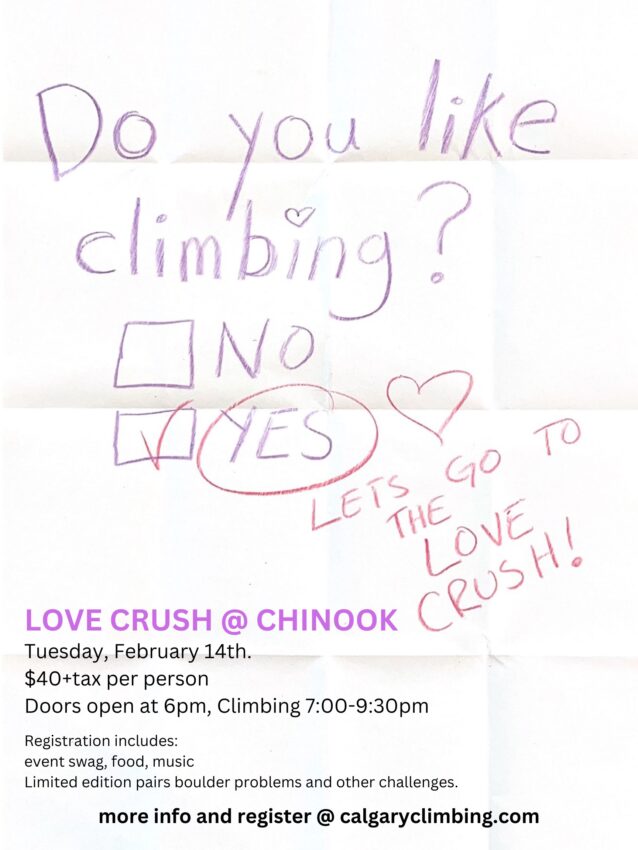 Do you like
climbing?
NO
YES
LETS GO TO
THE
LOVE
CRUSH!
LOVE CRUSH @ CHINOOK
Tuesday, February 14th.
$40+tax per person
Doors open at 6pm, Climbing 7:00-9:30pm
Registration includes:
event swag, food, music
Limited edition pairs boulder problems and other challenges.
more info and register @ calgaryclimbing.com